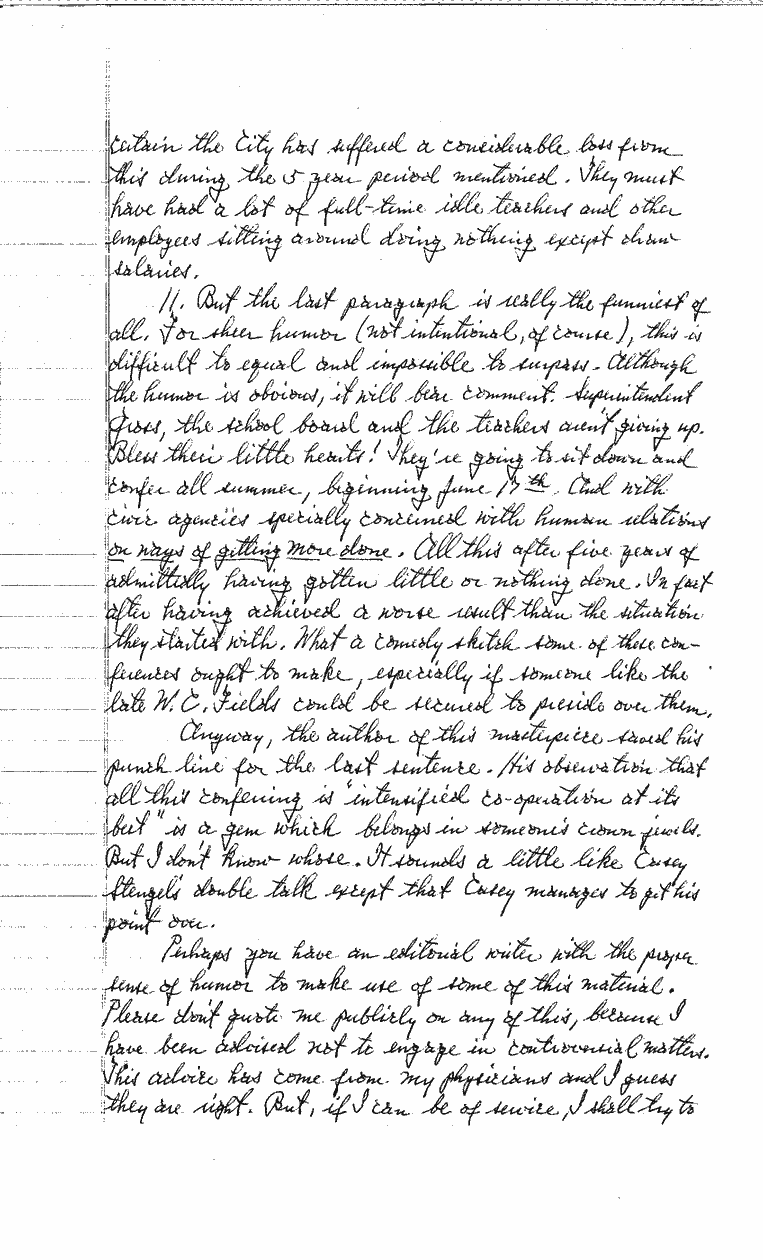 certain the City has suffered a considerable loss from
this during the 5 year period mentioned. They must
have had a lot of full-time idle teachers and other
employees sitting around doing nothing except draw
salaries.
11. But the last paragraph is really the funniest of
all. For sheer humor (not intentional, of course), this is
difficult to equal and impossible to surpass. Although
the humor is obvious, it will bear comment. Superintendent
Gross, the school board and the teachers aren't giving up.
Bless their little hearts! They're going to sit down and
confer all summer, beginning June 17th. And with
civic agencies specially concerned with human relations
on ways of getting more done. All this after five years of
admittedly having gotten little or nothing done. In fact
after having achieved a worse result than the situation
they started with. What a comedy sketch some of these con-
ferences ought to make, especially if someone like the
late W. C. Fields could be secured to preside over them.
Anyway, the author of this masterpiece saved his
punch line for the last sentence. His observation that
all this conferring is "intensified co-operation at its
best" is a gem which belongs in someone's crown jewels.
But I don't know whose. It sounds a little like Casey
Stengel's double talk except that Casey manages to get his
point over.
Perhaps you have an editorial writer with the proper
sense of humor to make use of some of this material.
Please don't quote me publicly on any of this, because I
have been advised not to engage in controversial matters.
This advice has come from my physicians and I guess
they are right. But, if I can be of service, I shall try to